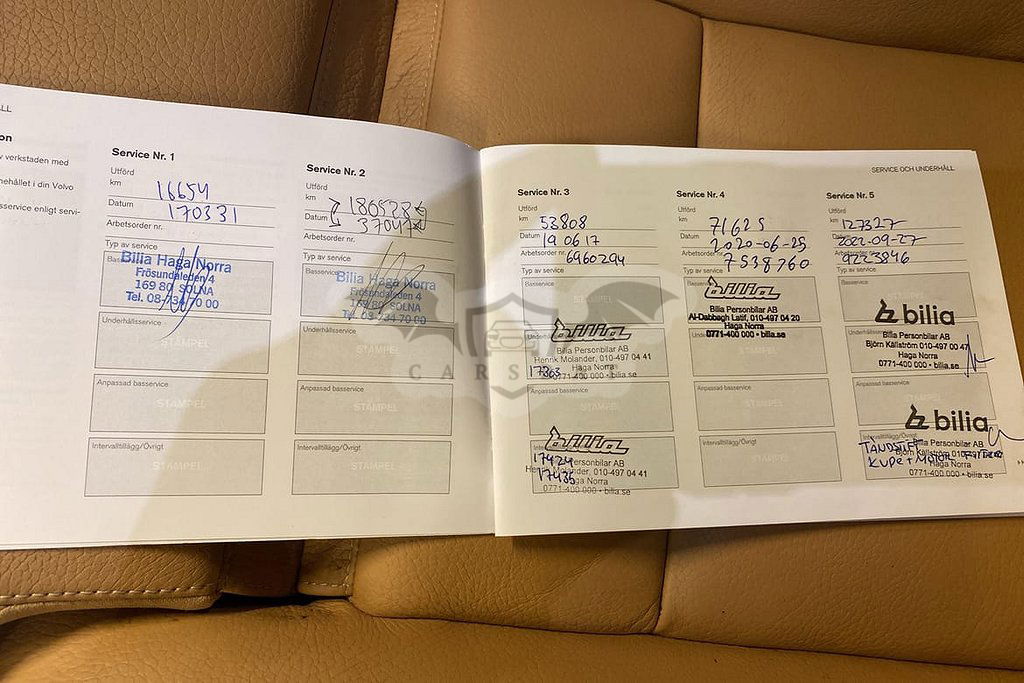 ALL
on
v verkstaden med
nehållet i din Volvo
sservice enligt servi-
Service Nr. 1
Utförd
km 16654
Datum 170331
Arbetsorder nr.
Typ av service
Bilia Haga Norra
Frösundaleden 4
169 80 SOLNA
Tel. 08-734 70 00
Underhållsservice
STÄMPEL
Anpassad basservice
STÄMPEL
Intervalltillägg/Övrigt
STÄMPEL
Service Nr. 2
Utförd
km 180528
Datum 37047
Arbetsorder nr.
Typ av service
Basservice
Bilia Haga Norra
Frösundaleden 4
169 80 SOLNA
Tel. 08-734 70 00
Underhållsservice
STÄMPEL
Anpassad basservice
STÄMPEL
Intervalltillägg/Övrigt
STÄMPEL
SERVICE OCH UNDERHÅLL
Service Nr. 3
Utförd
km 53808
Datum 19 06 17
Arbetsorder nr. 6960294
Typ av service
Basservice
bilia
Bilia Personbilar AB
Henrik Molander, 010-497 04 41
17363 Haga Norra
0771-400 000 • bilia.se
Anpassad basservice
STÄMPEL
Intervalltillägg/Övrigt
bilia
17424 Personbilar AB
Molander, 010-497 04 41
17435 Haga Norra
0771-400 000 • bilia.se
Service Nr. 4
Utförd
km 71625
Datum 2020-06-25
Arbetsorder nr. 7538760
Typ av service
bilia
Bilia Personbilar AB
Al-Dabbagh Latif, 010-497 04 20
Haga Norra
0771-400 000 • bilia.se
Underhållsservice
STÄMPEL
Anpassad basservice
STÄMPEL
Intervalltillägg/Övrigt
STÄMPEL
Service Nr. 5
Utförd
km 127327
Datum 2022-09-27
Arbetsorder nr. 9223846
Typ av service
Basservice
bilia
Bilia Personbilar AB
Björn Källström 010-497 00 47
Haga Norra
0771-400 000 • bilia.se
Anpassad basservice
bilia
Intervalltillägg/Övrigt
Bilia Personbilar AB
TÄNDSTIFT Björn Källström
KUPE + MOTOR FILTER
Haga Norra
0771-400 000 • bilia.se